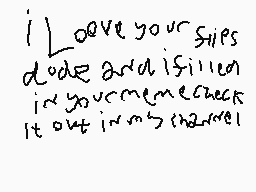 i Loove your flips
dude and i filled
in your meme check
it out in my channel